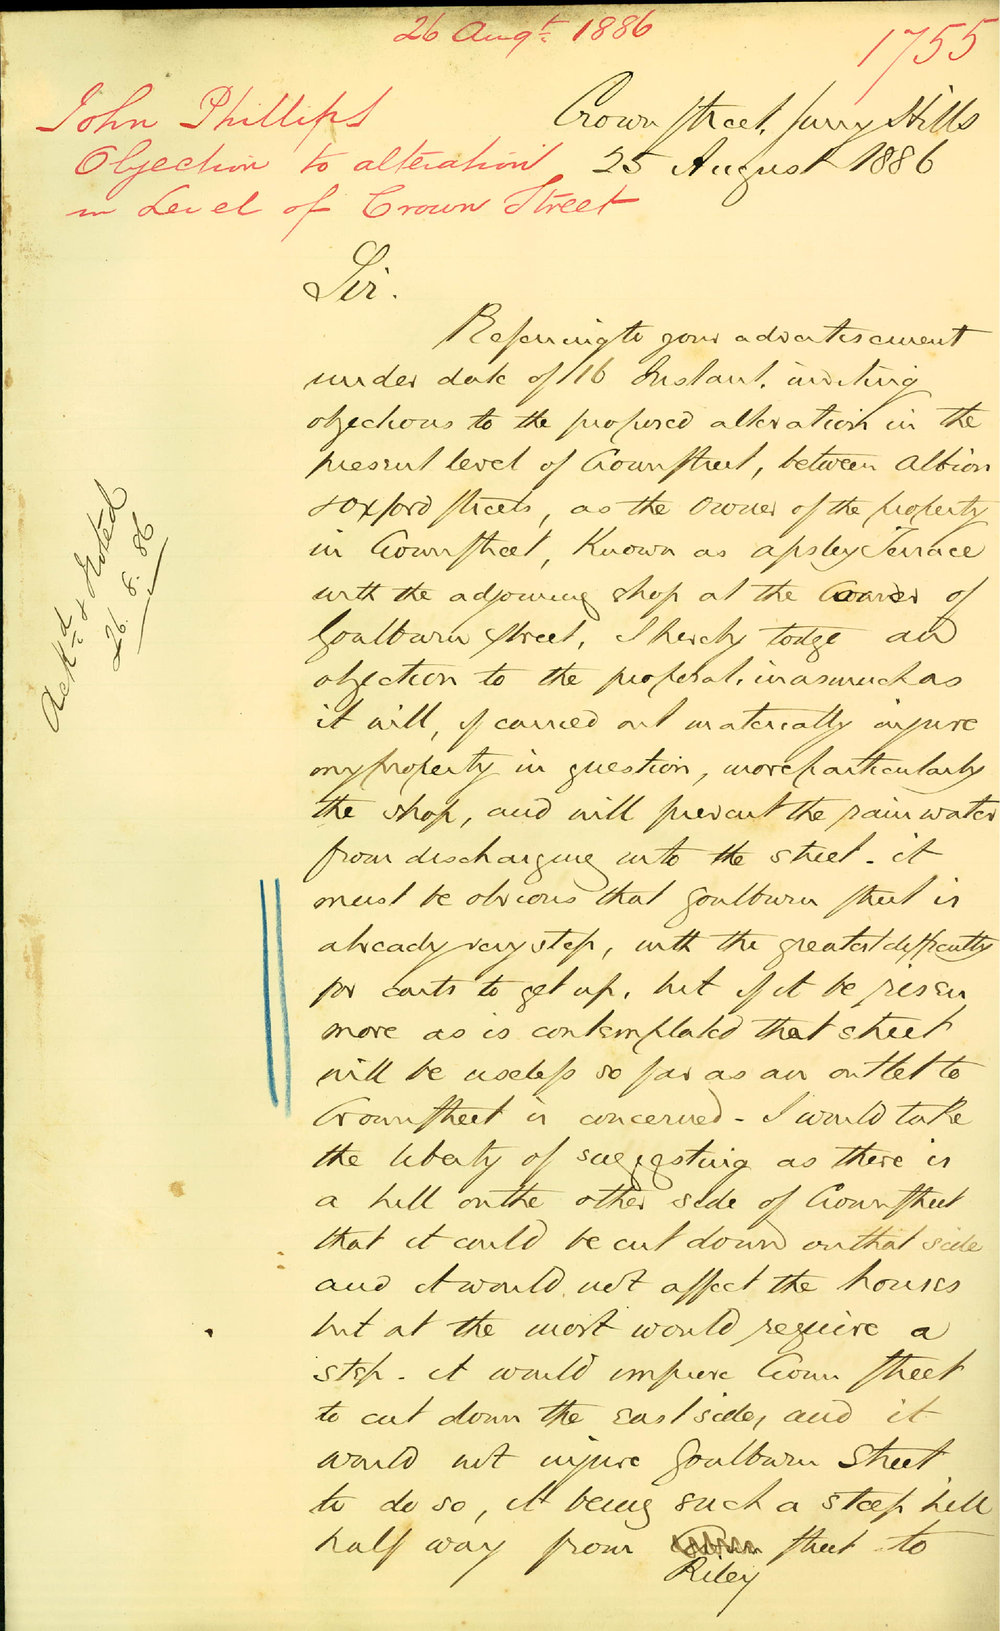 26 Augt 1886
1755
John Phillips
Objection to alteration
in Level of Crown Street
Crown Street, Surry Hills
25 August 1886
Ackd & Noted
26.8.86
Sir.
Referring to your advertisement
under date of 16 Instant, inviting
objections to the proposed alteration in the
present level of Crown Street, between Albion
& Oxford Streets, as the Owner of the property
in Crown Street, Known as Apsley Terrace
with the adjoining shop at the Corner of
Goulburn Street, I hereby lodge an
objection to the proposal, inasmuch as
it will, if carried out materially injure
my property in question, more particularly
the shop, and will prevent the rain water
from discharging into the street - it
must be obvious that Goulburn Street is
already very step, with the greatest difficulty
for carts to get up, but if it be risen
more as is contemplated that street
will be useless so far as an outlet to
Crown Street is concerned - I would take
the liberty of suggesting as there is
a hill on the other side of Crown Street
that it could be cut down on that side
and it would not affect the houses
but at the most would require a
step - it would improve Crown Street
to cut down the east side, and it
would not injure Goulburn Street
to do so, it being such a steep hill
half way from Street to
Riley